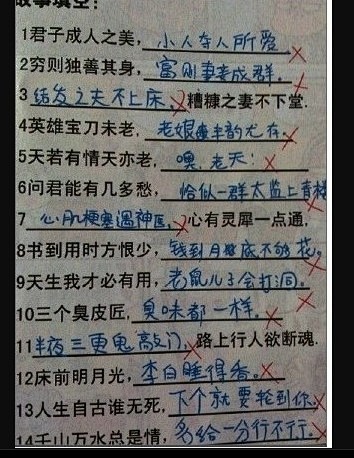 故事填空:
1君子成人之美,小人夺人所爱
2穷则独善其身,富则妻妾成群.
3结发之夫不上床,糟糠之妻不下堂.
4英雄宝刀未老,老娘丰韵尤存.
5天若有情天亦老,噢,老天!
6问君能有几多愁,恰似一群太监上青楼
7心肌梗塞遇神医,心有灵犀一点通.
8书到用时方恨少,钱到月底不够花.
9天生我才必有用,老鼠儿子会打洞.
10三个臭皮匠,臭味都一样.
11半夜三更鬼敲门,路上行人欲断魂.
12床前明月光,李白睡得香.
13人生自古谁无死,下个就要轮到你.
14千山万水总是情,多给一分行不行.